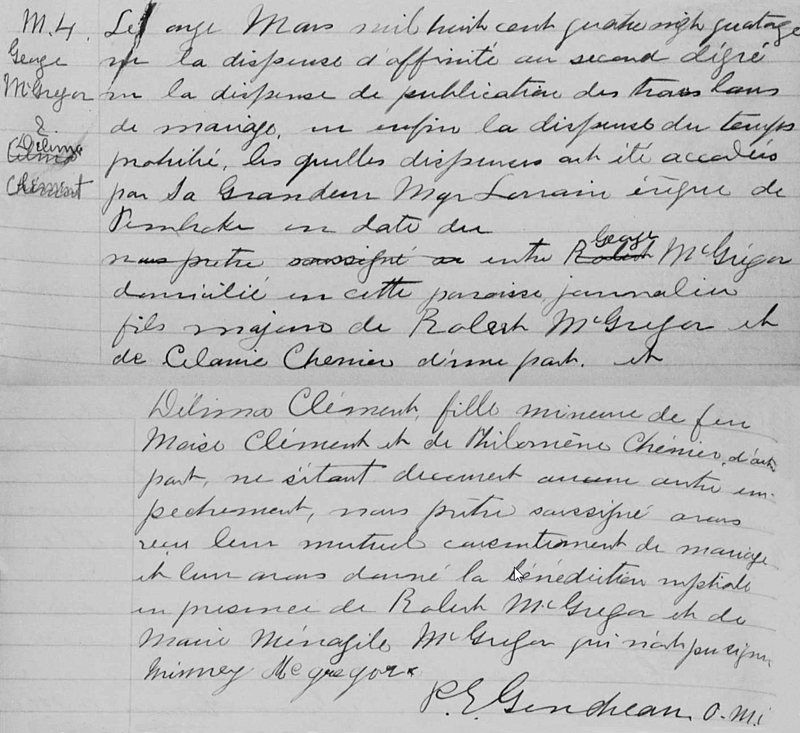 M.4.
George
McGregor
&
Délima
Clément
Le onze Mars mil huit cent quatre vingt quatorze
vu la dispense d'affinité au second dégré
vu la dispense de publication des trois bans
de mariage, vu enfin la dispense du temps
prohibé, les quelles dispenses ont été accordées
par Sa Grandeur Mgr Lorrain évêque de
Pembroke en date du
nous prêtre soussigné entre George Robert McGrégor
domicilié en cette paroisse journalier
fils majeur de Robert McGregor et
de Célanie Chenier d'une part. et
Délima Clément, fille mineure de feu
Moïse Clément et de Philomène Chénier, d'autre
part, ne s'étant découvert aucun autre em-
pêchement, nous prêtre soussigné avons
reçu leur mutuel consentement de mariage
et leur avons donné la bénédiction nuptiale
en présence de Robert McGregor et de
Marie McGregor qui n'ont pu signer
Minney Mcgregor x
P.E. Gendreau O.M.I.